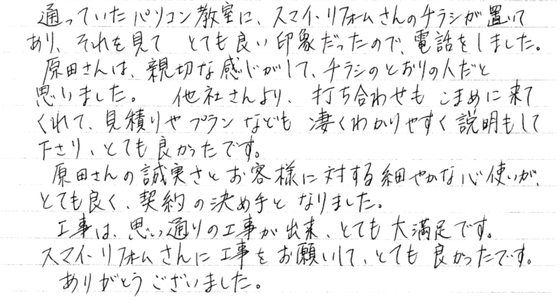 通っていたパソコン教室に、スマイ・リフォームさんのチラシが置いて
あり、それを見て とても良い印象だったので、電話をしました。
原田さんは、親切な感じがして、チラシのとおりの人だと
思いました。 他社さんより、打ち合わせも こまめに来て
くれて、見積りや プラン なども 凄くわかりやすく説明もして
下さり、とても良かったです。
原田さんの誠実さとお客様に対する細やかな心使いが、
とても良く、契約の決め手と なりました。
工事は、思い通りの工事が出来、とても大満足です。
スマイ・リフォームさんに工事をお願いして、とても良かったです。
ありがとうございました。